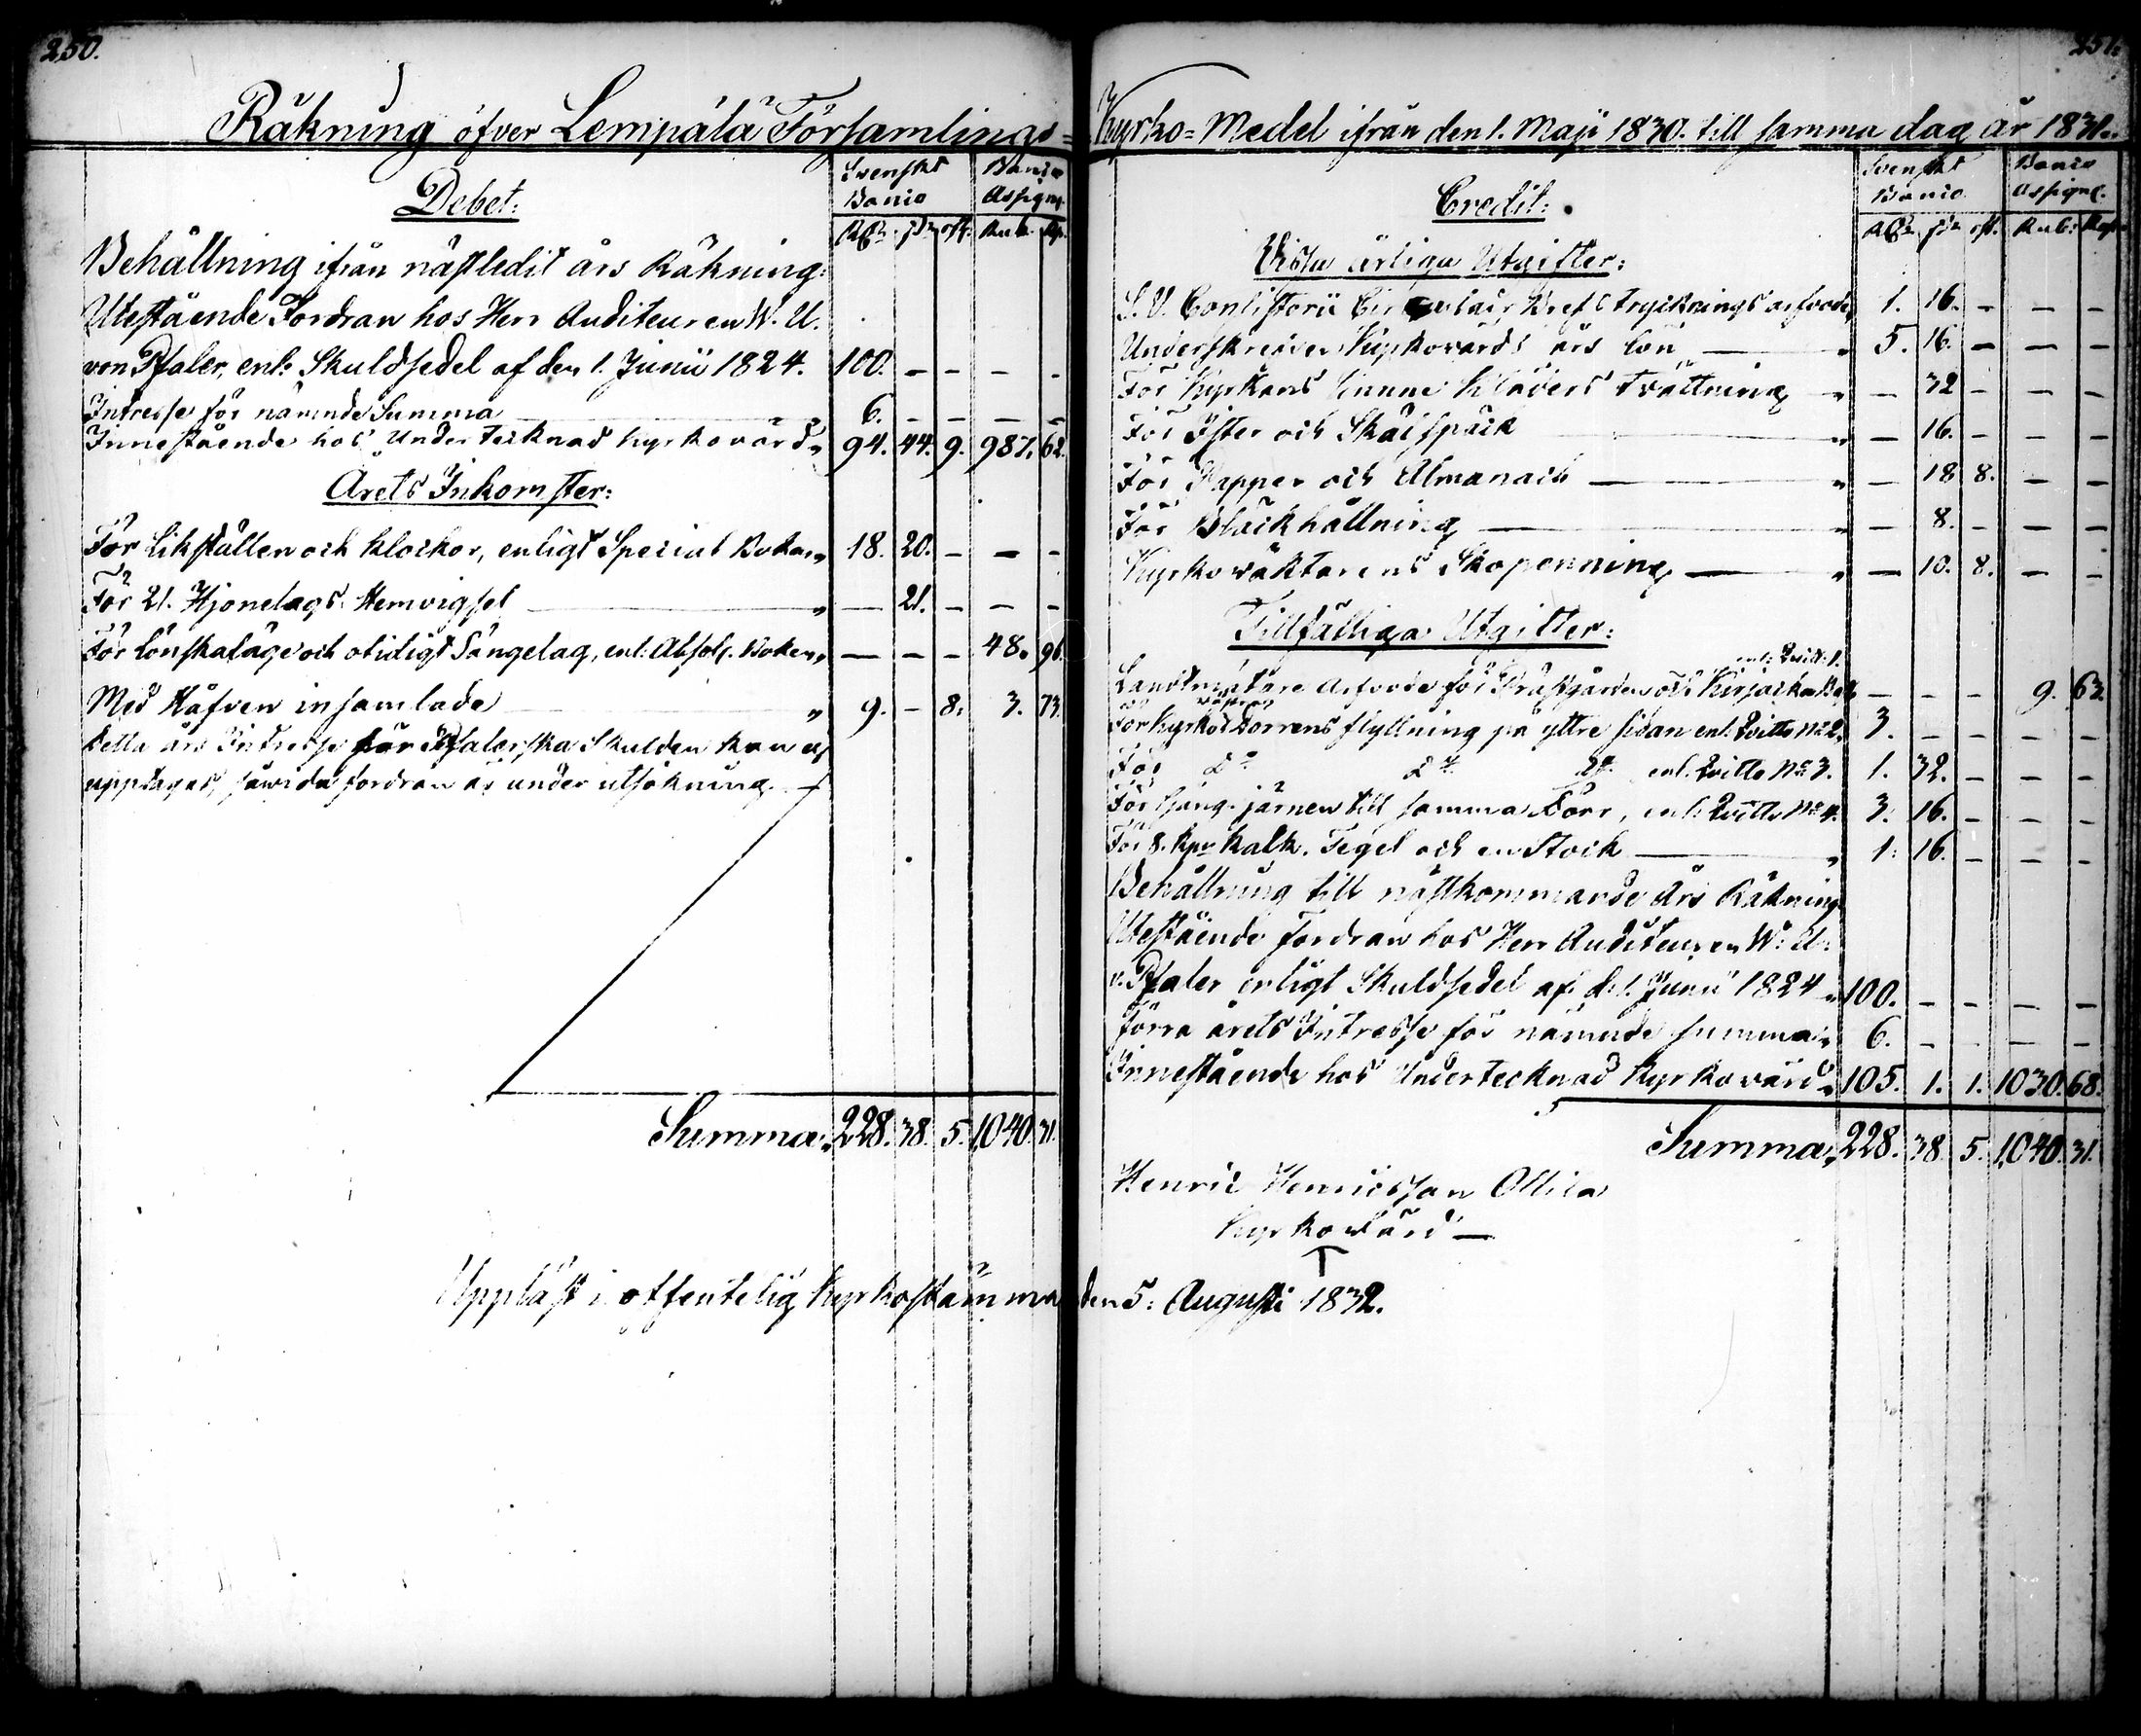 250.
Räkning öfver Lempälä Församlings=
Debet:
Svenskt Banco
Banco Assign.
RD. s. rst. Rub. Kop.
Behållning ifrån nästledit års Räkning:
Utestående Fordran hos Herr Auditeuren W. U.
von Pfaler, enl. Skuldsedel af den 1. Junii 1824. 100. – – – –
Intresse för nämnde Summa 6. – – – –
Innestående hos Undertecknad Kyrkovärd „ 94. 44. 9. 987. 62.
Årets Inkomster:
För Likställen och Klockor, enligt Special Boken „ 18. 20. – – –
För 21. Hjonelags Hemvigsel „ — 21. – – –
För Lönskaläge och otidigt Sängelag, enl. Absol. Boken „ — – – 48. 96.
Med Håfven insamlade „ 9. – 8. 3. 73.
Detta års Intresse för Pfalerska Skulden kan ej
upptagas, såvida fordran är under utsökning. –
Summa „ 228. 38. 5. 1,040. 31.
Uppläst i offentelig Kyrkostämma den 5. Augusti 1832.
251.
Kyrko=Medel ifrån den 1. Maji 1830. till samma dag år 1831.
Credit:
Svenskt Banco
Banco Assign.
RD. s. rst. Rub. Kop.
Vissa årliga Utgifter:
S. V. Consistorii Circulair Bref Tryckningsarfvode 1. 16. – – –
Underskrefven Kyrkovärds års Lön „ 5. 16. – – –
För Kyrkans Linne Kläders Tvättning „ — 32 – – –
För Ister och Skäispäck „ — 16. – – –
För Papper och Almanach „ — 18 8. – –
För Bläckhållning „ — 8. – – –
Kyrkovaktarens Skopenning „ — 10. 8. – –
Tillfälliga Utgifter:
enl: Qvitt: 1.
Landtmätare Arfvode för Prästgårdens och – – – 9. 63.
För Kyrko Dörrens flyttning på yttre sidan enl. Qvitto No 2. 3. – – – –
För Do Do Do enl. Qvitto No 3. 1. 32. – – –
För Gång-järnen till samma Dörr, enl. Qvitto No 4. 3. 16. – – –
För 8. Kpr Kalk. Tegel och en Stock „ 1. 16. – – –
Behållning till nästkommande års Räkning
Utestående Fordran hos Herr Auditeuren W. U.
v. Pfaler enligt Skuldsedel af d. 1. Junii 1824 „ 100. – – – –
förra årets Intresse för nämnde summa „ 6. – – – –
Innestående hos Undertecknad Kyrkovärd „ 105. 1. 1. 1030. 68.
Summa „ 228. 38. 5. 1,040. 31.
Henric Henricsson Ollila
Kyrkovärd —